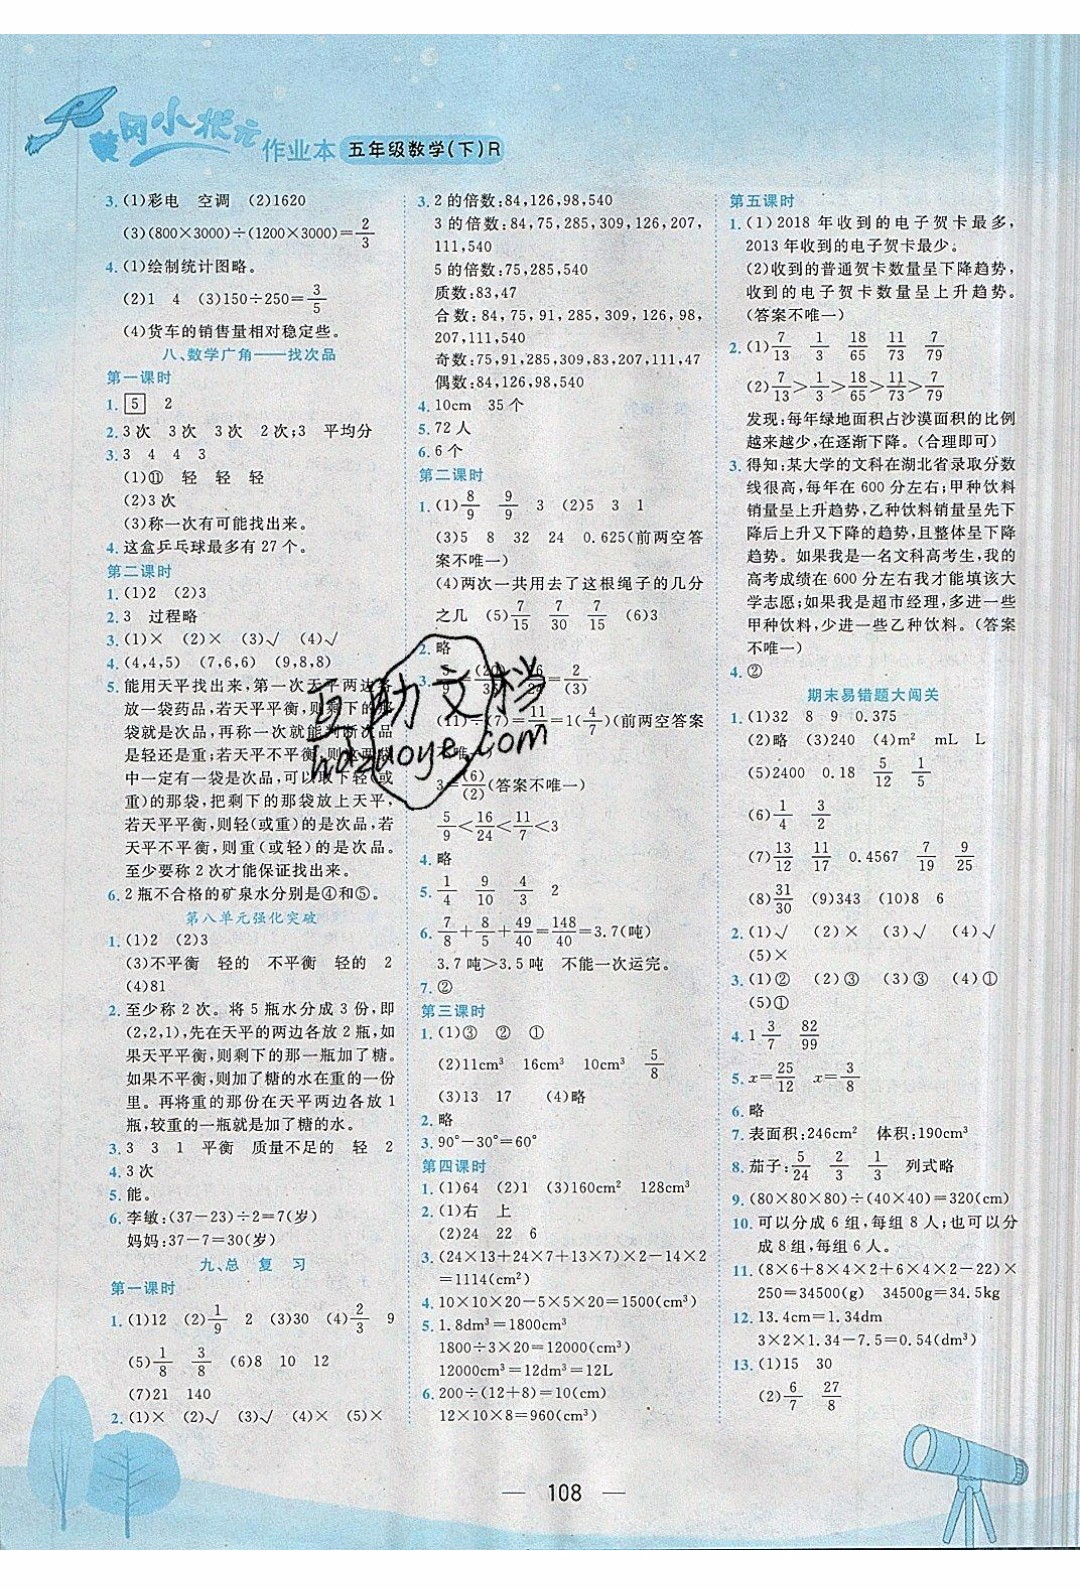 黄冈小状元 作业本 五年级数学(下)R
3.(1)彩电 空调 (2)1620
(3)(800×3000)÷(1200×3000)=2/3
4.(1)绘制统计图略。
(2)1 4 (3)150÷250=3/5
(4)货车的销售量相对稳定些。
八、数学广角——找次品
第一课时
1. 5 2
2.3次 3次 3次 2次;3 平均分
3.3 4 4 3
(1)⑪ 轻 轻 轻
(2)3次
(3)称一次有可能找出来。
4.这盒乒乓球最多有27个。
第二课时
1.(1)2 (2)3
2.3 过程略
3.(1)× (2)× (3)√ (4)√
4.(4,4,5) (7,6,6) (9,8,8)
5.能用天平找出来,第一次天平两边各
放一袋药品,若天平平衡,则剩下的那
袋就是次品,再称一次就能判断次品
是轻还是重;若天平不平衡,则这两袋
中一定有一袋是次品,可以取下轻(或
重)的那袋,把剩下的那袋放上天平,
若天平平衡,则轻(或重)的是次品,若
天平不平衡,则重(或轻)的是次品。
至少要称2次才能保证找出来。
6.2瓶不合格的矿泉水分别是④和⑤。
第八单元强化突破
1.(1)2 (2)3
(3)不平衡 轻的 不平衡 轻的 2
(4)81
2.至少称2次。将5瓶水分成3份,即
(2,2,1),先在天平的两边各放2瓶,如
果天平平衡,则剩下的那一瓶加了糖。
如果不平衡,则加了糖的水在重的一份
里。再将重的那份在天平两边各放1
瓶,较重的一瓶就是加了糖的水。
3.3 3 1 平衡 质量不足的 轻 2
4.3次
5.能。
6.李敏:(37-23)÷2=7(岁)
妈妈:37-7=30(岁)
九、总 复 习
第一课时
1.(1)12 (2)1/9 2 (3)30 (4)2/3 9
(5)1/8 3/8 (6)8 10 12
(7)21 140
2.(1)× (2)√ (3)√ (4)× (5)×
3.2的倍数:84,126,98,540
3的倍数:84,75,285,309,126,207,
111,540
5的倍数:75,285,540
质数:83,47
合数:84,75,91,285,309,126,98,
207,111,540
奇数:75,91,285,309,83,207,111,47
偶数:84,126,98,540
4.10cm 35个
5.72人
6.6个
第二课时
1.(1)8/9 9/9 3 (2)5 3 1
(3)5 8 32 24 0.625(前两空答
案不唯一)
(4)两次一共用去了这根绳子的几分
之几 (5)7/15 7/30 7/15 (6)3
2.略
3.5/9=(20)/36 16/24=2/(3)
(11)÷(7)=11/7=1(4/7)(前两空答案
不唯一)
3=(6)/(2)(答案不唯一)
5/9<16/24<11/7<3
4.略
5.1/4 9/10 4/3 2
6.7/8+8/5+49/40=148/40=3.7(吨)
3.7吨>3.5吨 不能一次运完。
7.②
第三课时
1.(1)③ ② ①
(2)11cm³ 16cm³ 10cm³ 5/8
(3)13 17 (4)略
2.略
3.90°-30°=60°
第四课时
1.(1)64 (2)1 (3)160cm² 128cm³
2.(1)右 上
(2)24 22 6
3.(24×13+24×7+13×7)×2-14×2
=1114(cm²)
4.10×10×20-5×5×20=1500(cm³)
5.1.8dm³=1800cm³
1800÷3×20=12000(cm³)
12000cm³=12dm³=12L
6.200÷(12+8)=10(cm)
12×10×8=960(cm³)
第五课时
1.(1)2018年收到的电子贺卡最多,
2013年收到的电子贺卡最少。
(2)收到的普通贺卡数量呈下降趋势,
收到的电子贺卡数量呈上升趋势。
(答案不唯一)
2.(1)7/13 1/3 18/65 11/73 7/79
(2)7/13>1/3>18/65>11/73>7/79
发现:每年绿地面积占沙漠面积的比例
越来越少,在逐渐下降。(合理即可)
3.得知:某大学的文科在湖北省录取分数
线很高,每年在600分左右;甲种饮料
销量呈上升趋势,乙种饮料销量呈先下
降后上升又下降的趋势,且整体呈下降
趋势。如果我是一名文科高考生,我的
高考成绩在600分左右我才能填该大
学志愿;如果我是超市经理,多进一些
甲种饮料,少进一些乙种饮料。(答案
不唯一)
4.②
期末易错题大闯关
1.(1)32 8 9 0.375
(2)略 (3)240 (4)m² mL L
(5)2400 0.18 5/12 1/5
(6)1/4 3/2
(7)13/12 11/17 0.4567 7/19 9/25
(8)31/30 (9)343 (10)8 6
2.(1)√ (2)× (3)√ (4)√
(5)×
3.(1)② (2)③ (3)③ (4)①
(5)①
4.1 3/7 82/99
5.x=25/12 x=3/8
6.略
7.表面积:246cm² 体积:190cm³
8.茄子:5/24 2/3 1/3 列式略
9.(80×80×80)÷(40×40)=320(cm)
10.可以分成6组,每组8人;也可以分
成8组,每组6人。
11.(8×6+8×4×2+6×4×2-22)×
250=34500(g) 34500g=34.5kg
12.13.4cm=1.34dm
3×2×1.34-7.5=0.54(dm³)
13.(1)15 30
(2)6/7 27/8
互助文档
hdzuoye.com
— 108 —